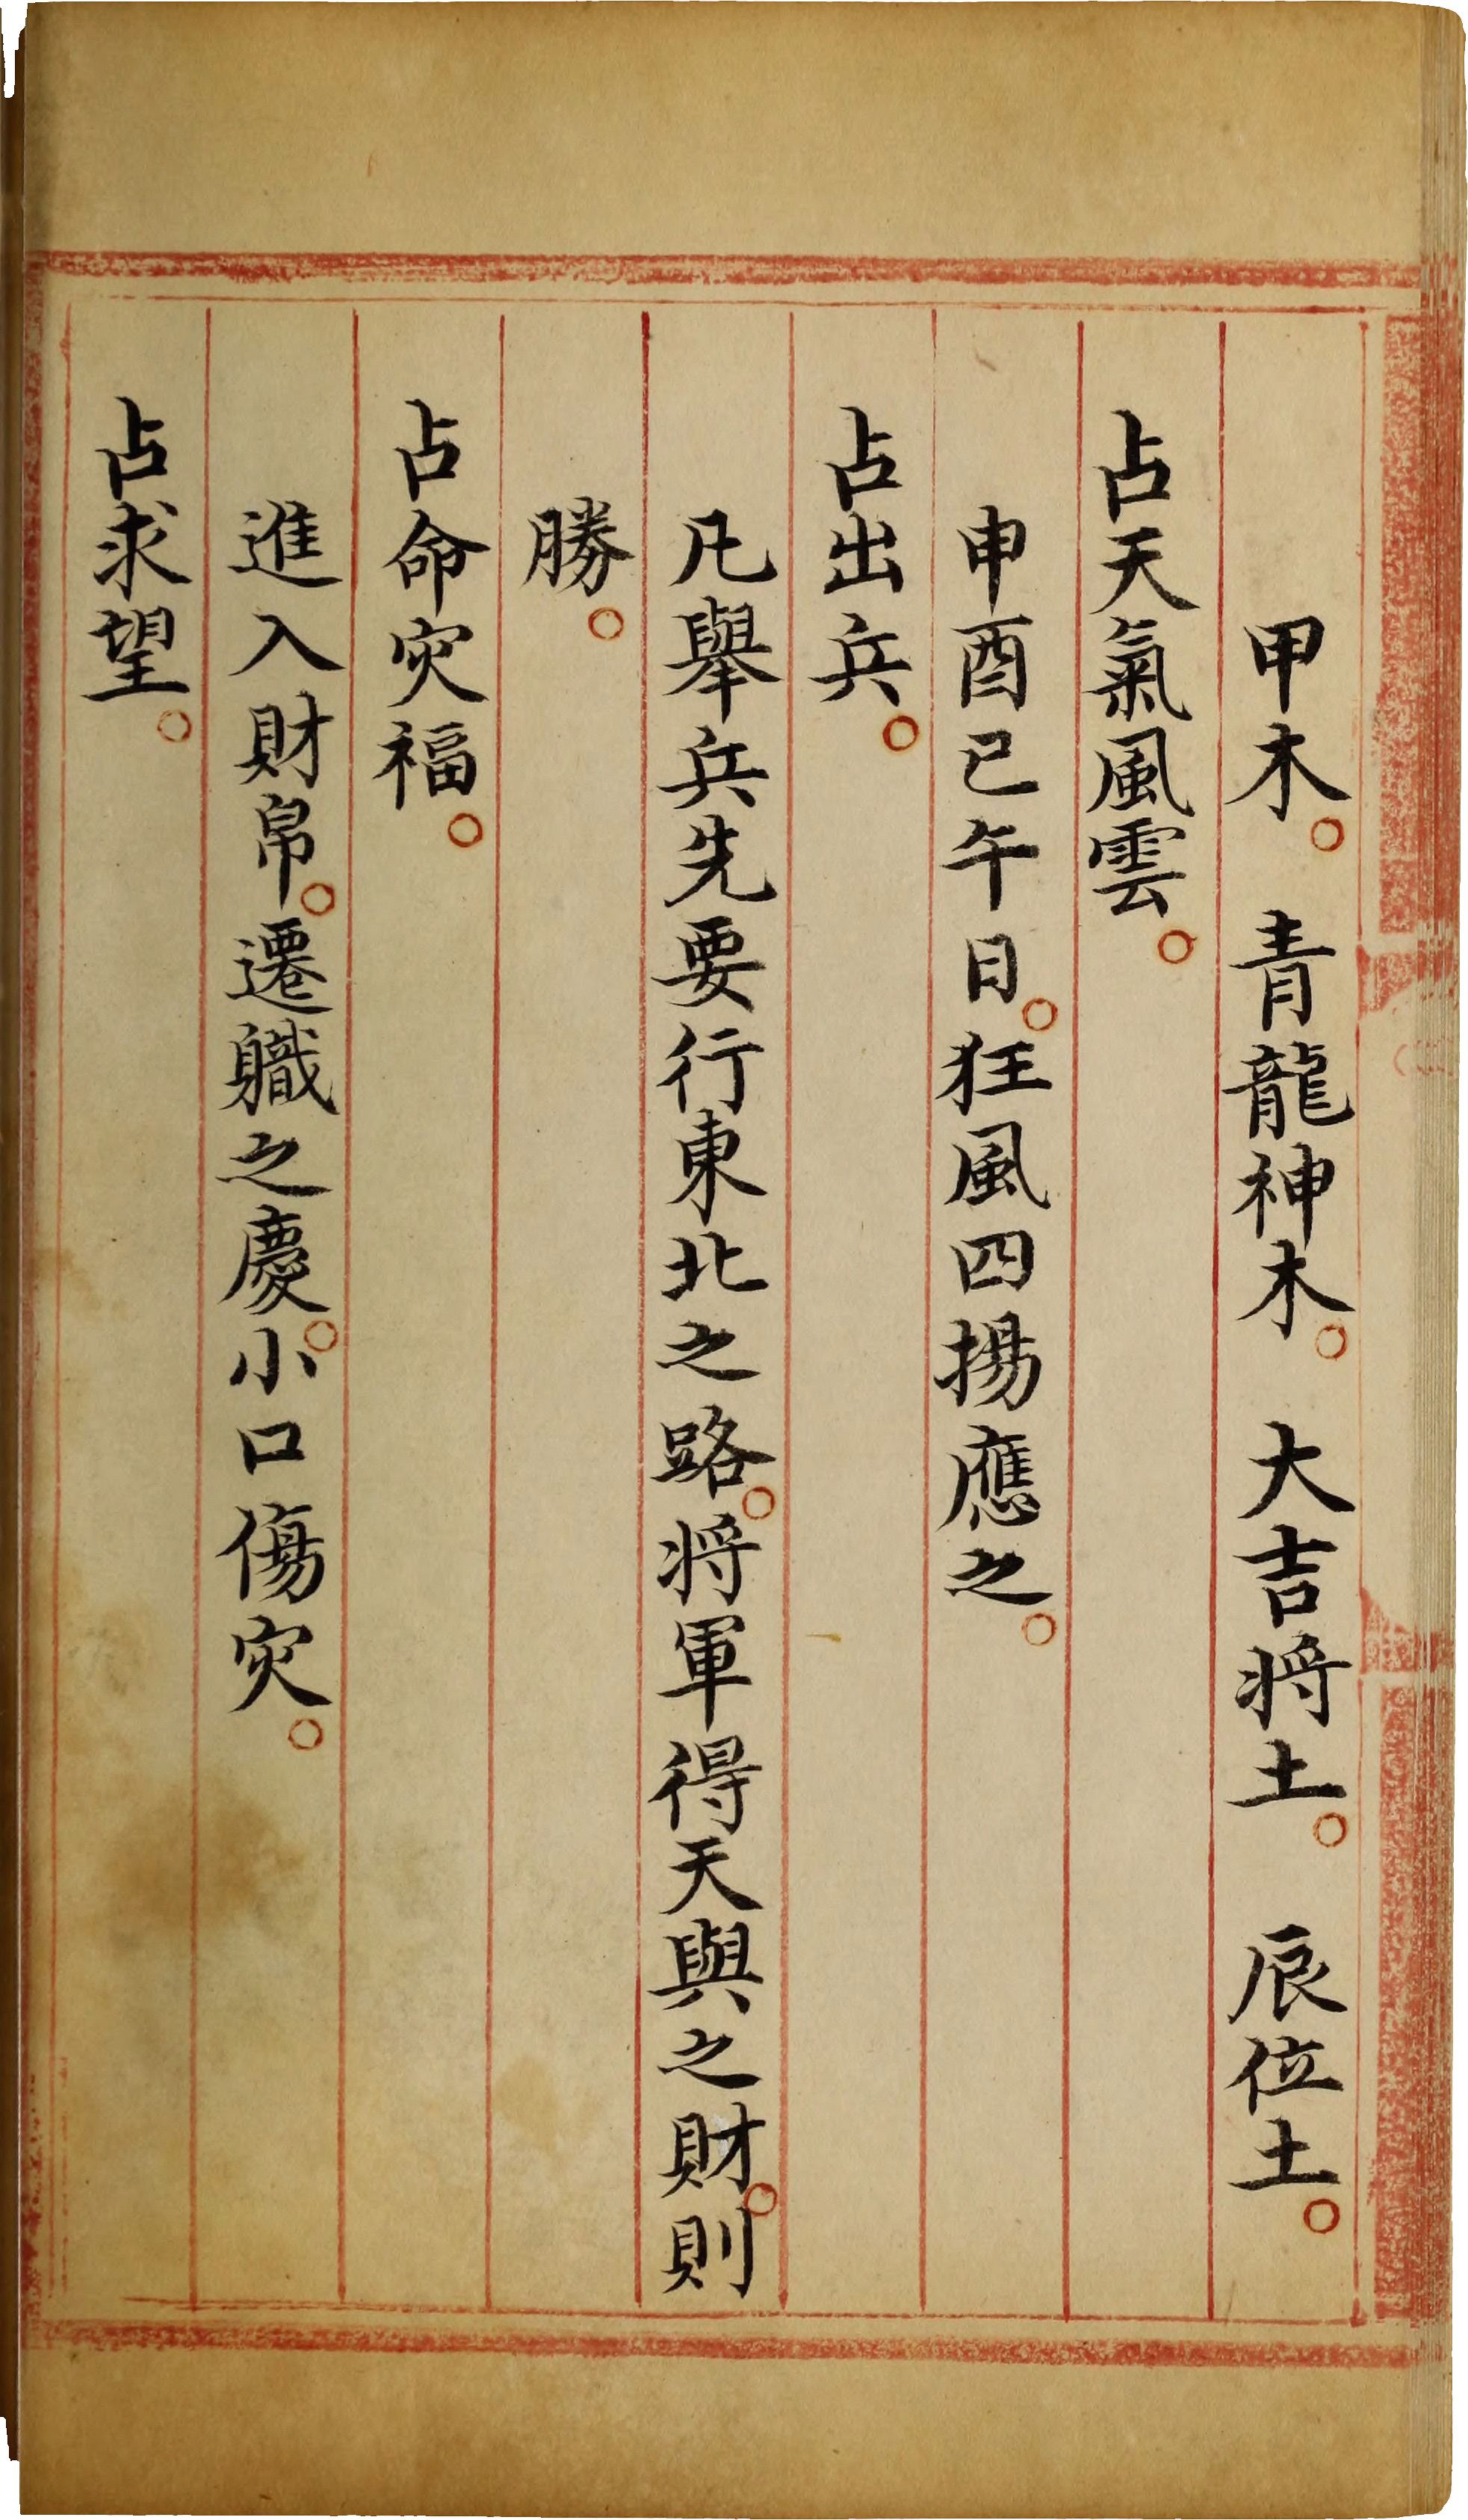 甲木。　青龍神木。　大吉将土。　辰位土。
占天氣風雲。
申酉巳午日。狂風四揚應之。
占出兵。
凡舉兵先要行東北之路。将軍得天與之財。則
勝。
占命灾福。
進入財帛。遷軄之慶。小口傷灾。
占求望。